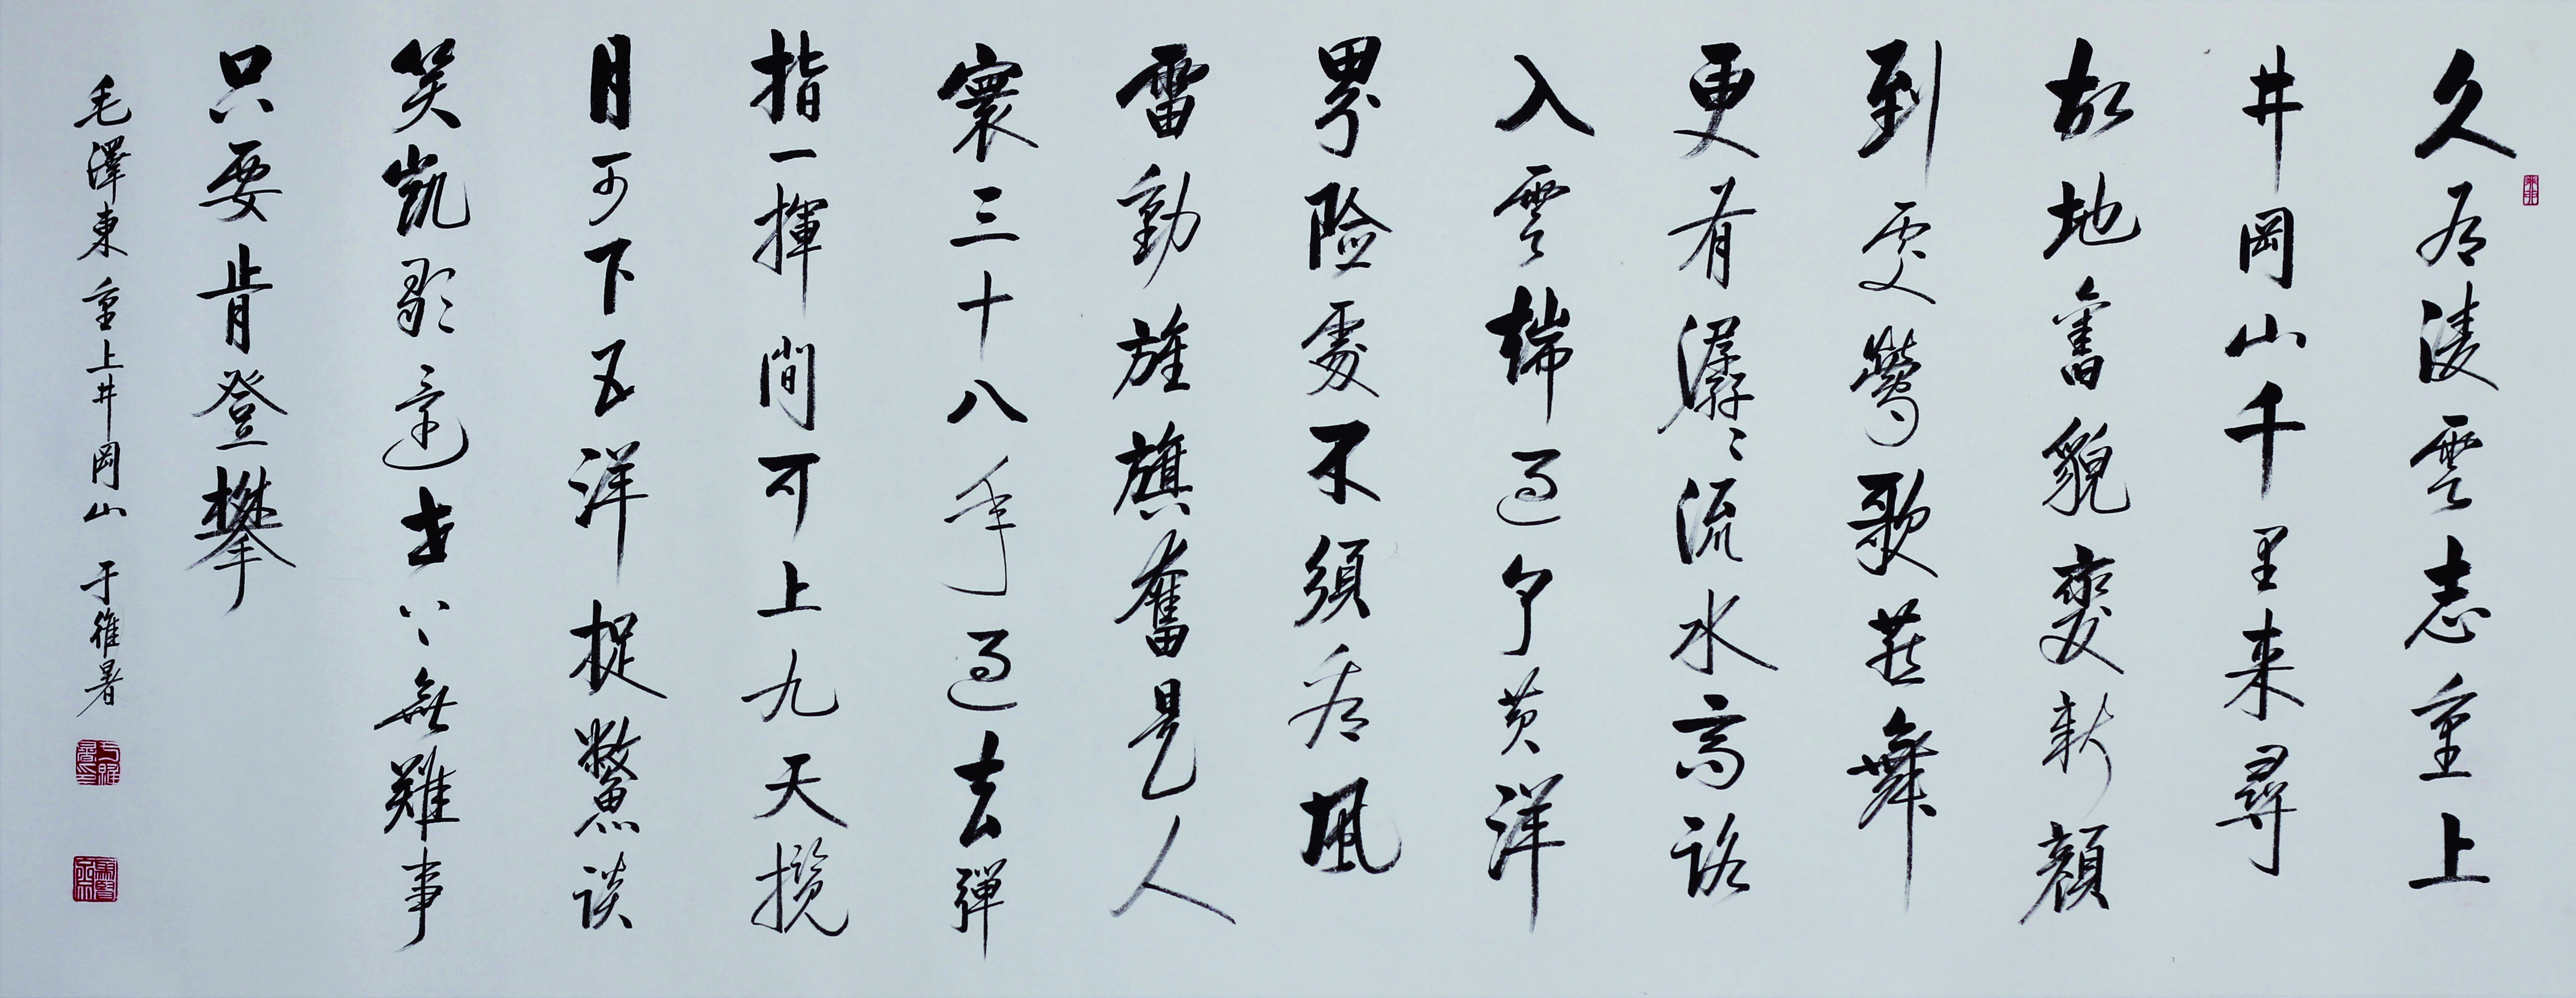 久有凌雲志重上
井岡山千里来尋
故地舊貌變新顔
到處鶯歌燕舞
更有潺〻流水高路
入雲端過了黄洋
界险處不須看風
雷動旌旗奮是人
寰三十八年過去彈
指一揮間可上九天攬
月可下五洋捉鱉談
笑凱歌還世上無難事
只要肯登攀
毛澤東重上井岡山 于維署